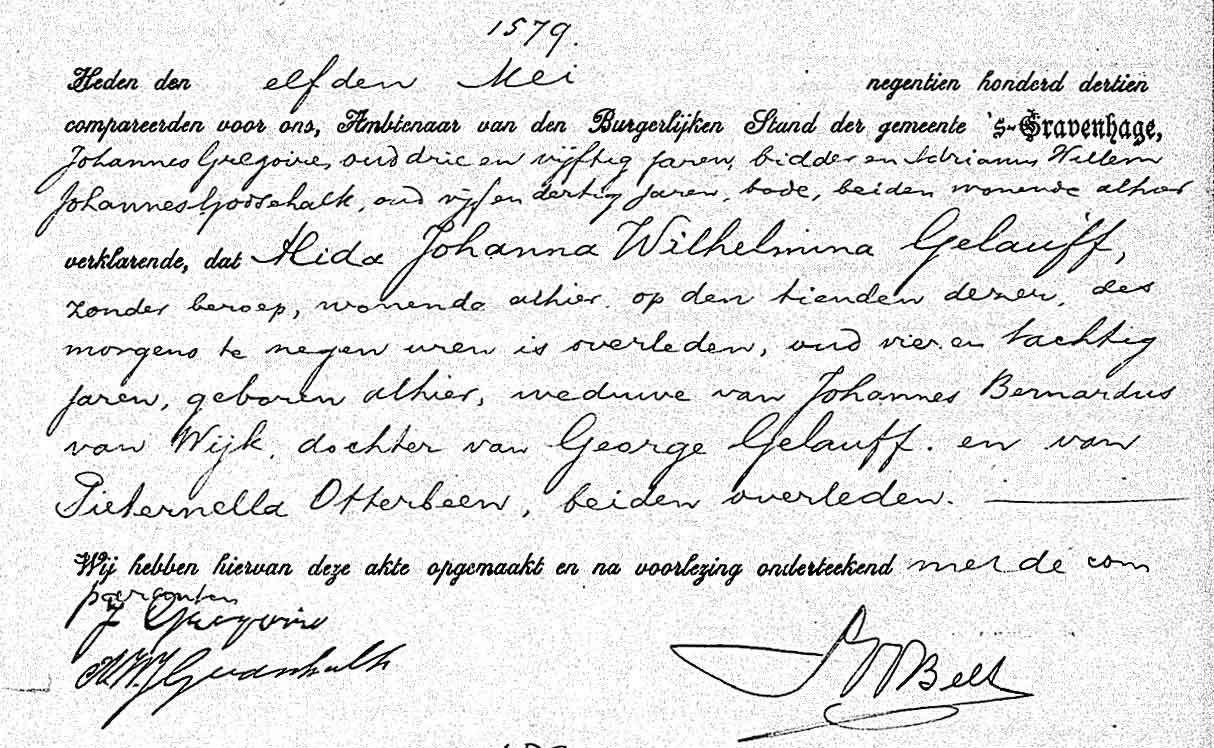 1579.
Heden den elfden Mei negentien honderd dertien
compareerden voor ons, Ambtenaar van den Burgerlijken Stand der gemeente 's-Gravenhage,
Johannes Gregoire, oud drie en vijftig jaren, bidder en Adrianus Willem
Johannes Godschalk, oud vijf en dertig jaren, bode, beiden wonende alhier
verklarende, dat Alida Johanna Wilhelmina Gelauff,
zonder beroep, wonende alhier op den tienden dezer, des
morgens te negen uren is overleden, oud vier en tachtig
jaren, geboren alhier, weduwe van Johannes Bernardus
van Wijk, dochter van George Gelauff. en van
Pieternella Otterbeen, beiden overleden.
Wij hebben hiervan deze akte opgemaakt en na voorlezing onderteekend met de com
paranten
J Gregoire
AWJ Godschalk
Belt